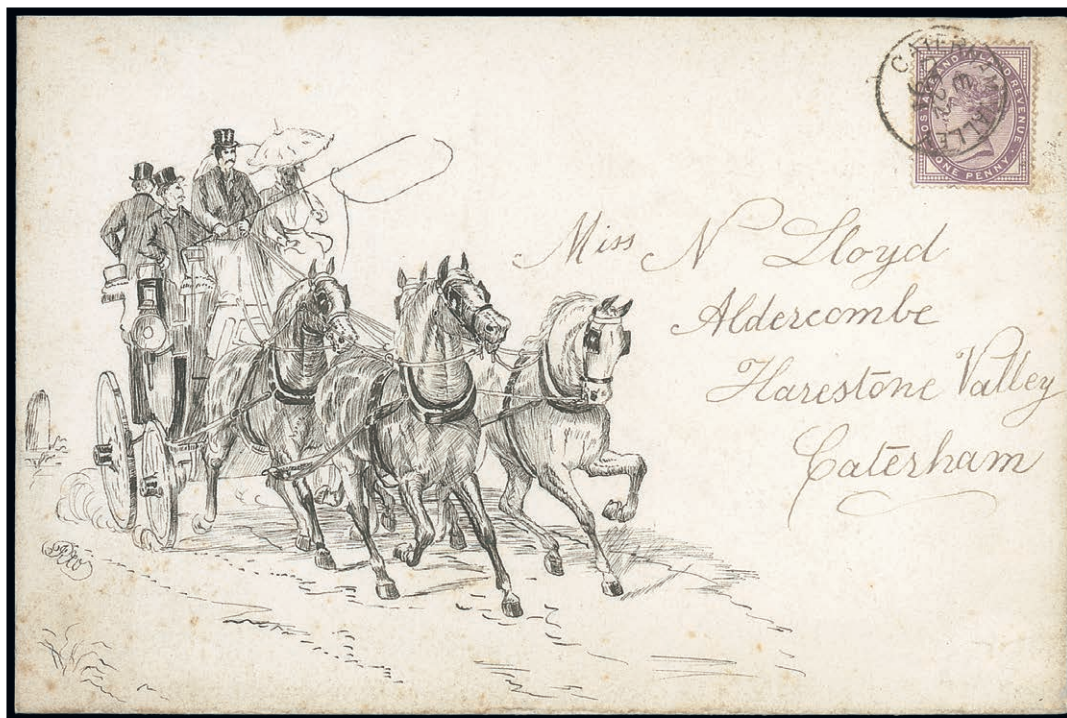 POSTAGE AND INLAND REVENUE
ONE PENNY
Miss N Lloyd
Aldercombe
Harestone Valley
Caterham